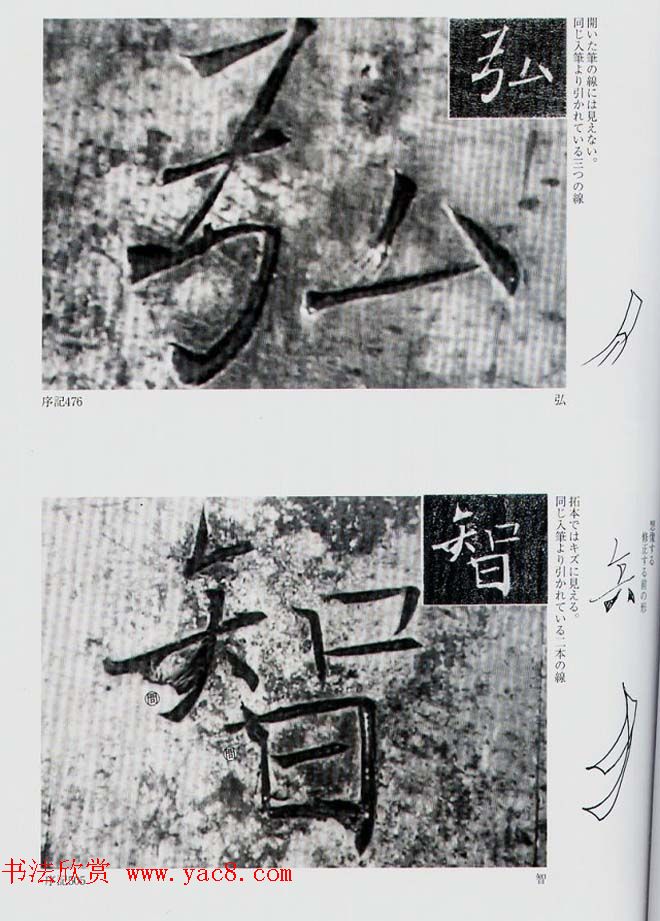 弘
弘
開いた筆の線には見えない。
同じ入筆より引かれている三つの線
序記476
弘
智
智
拓本ではキズに見える。
同じ入筆より引かれている二本の線
想像する
修正する前の形
序記505
智
书法欣赏 www.yac8.com